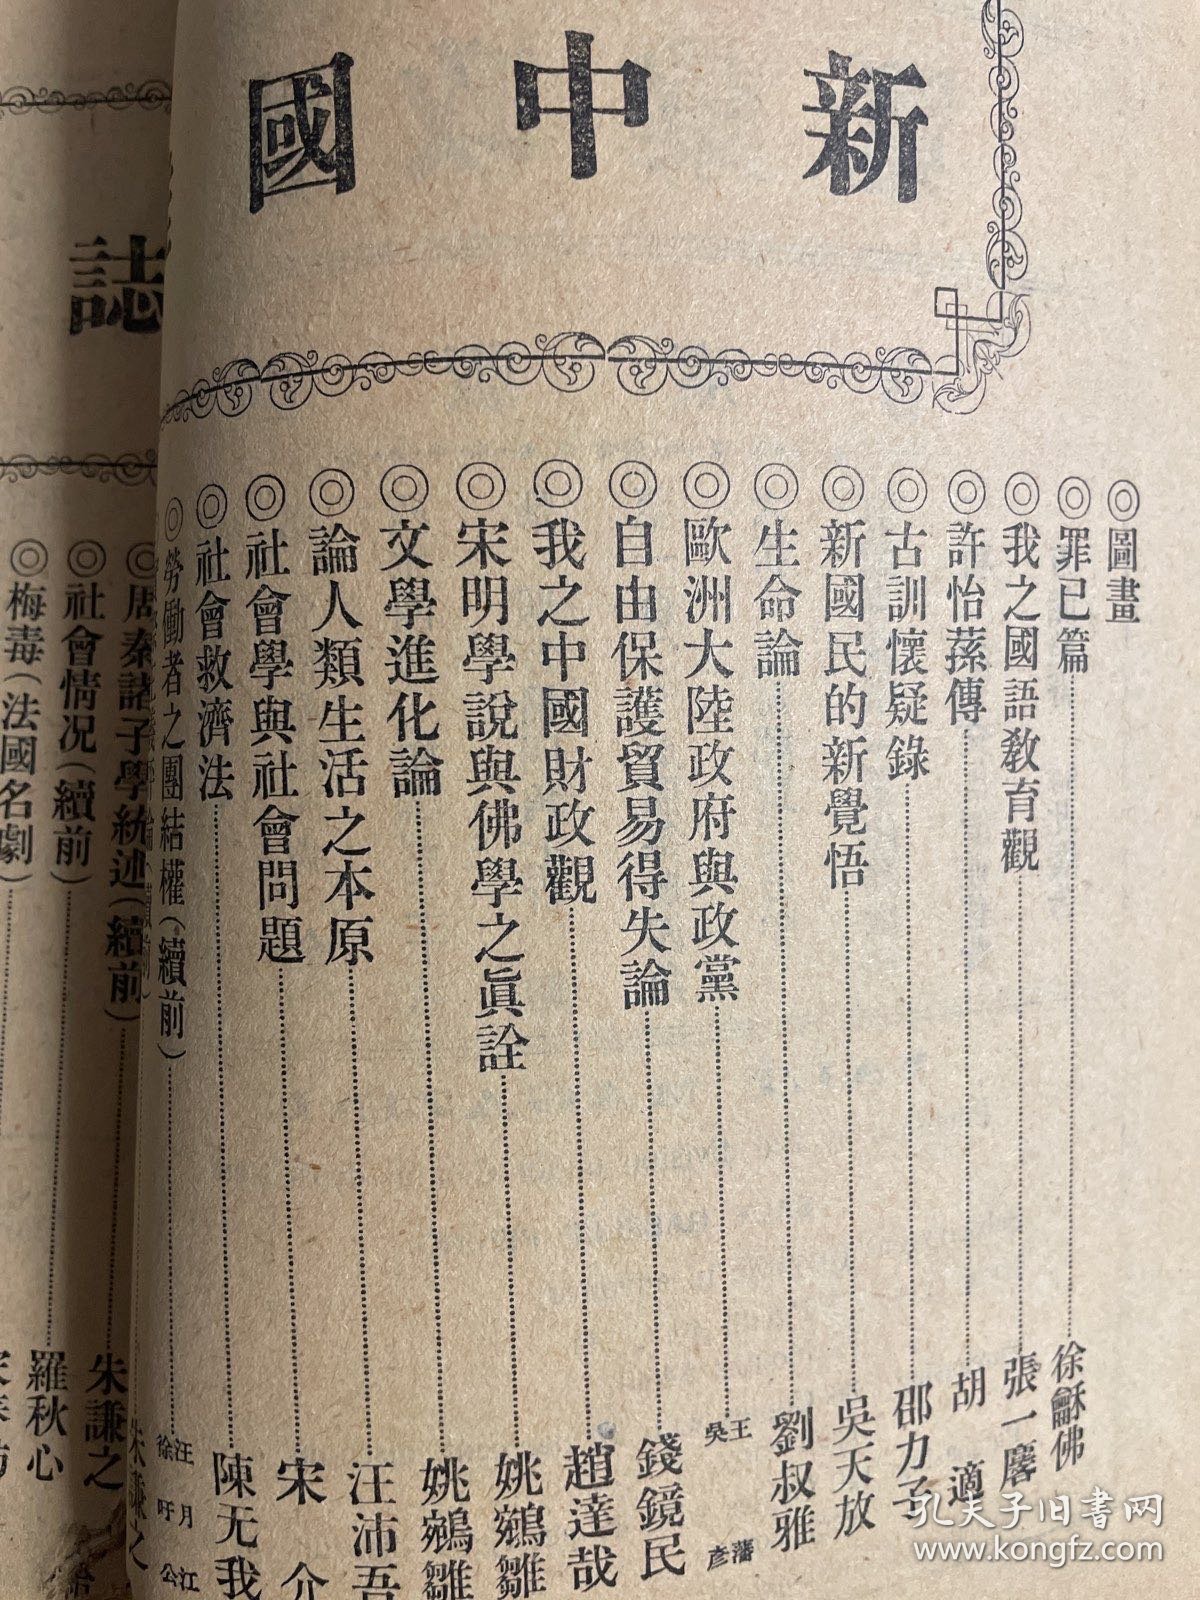 新中國
◎圖畫
◎罪己篇⋯⋯徐龢佛
◎我之國語教育觀⋯⋯張一麐
◎許怡蓀傳⋯⋯胡適
◎古訓懷疑錄⋯⋯邵力子
◎新國民的新覺悟⋯⋯吳天放
◎生命論⋯⋯劉叔雅
◎歐洲大陸政府與政黨⋯⋯王藩 吳彥
◎自由保護貿易得失論⋯⋯錢鏡民
◎我之中國財政觀⋯⋯趙達哉
◎宋明學說與佛學之眞詮⋯⋯姚鵷雛
◎文學進化論⋯⋯姚鵷雛
◎論人類生活之本原⋯⋯汪沛吾
◎社會學與社會問題⋯⋯宋介
◎社會救濟法⋯⋯陳无我
◎勞働者之團結權(續前)⋯⋯汪月江 徐吁公
朱謙之
誌
◎周秦諸子學統述(續前)⋯⋯朱謙之
◎社會情况(續前)⋯⋯羅秋心
◎梅毒(法國名劇)⋯⋯
孔夫子旧书网
www.kongfz.com